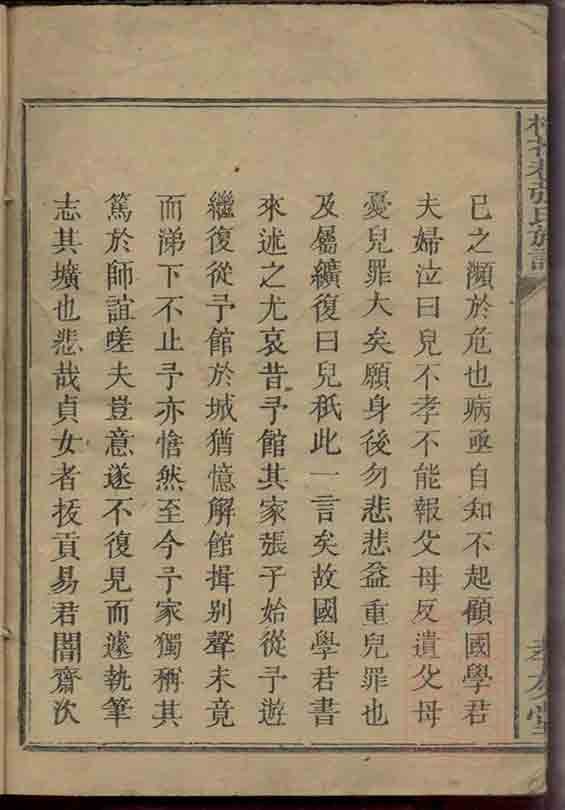 張氏族譜
孝友堂
已之瀕於危也病亟自知不起顧國學君
夫婦泣曰兒不孝不能報父母反遺父母
憂兒罪大矣願身後勿悲悲益重兒罪也
及屬纊復曰兒秖此一言矣故國學君書
來述之尤哀昔予館其家張子始從予遊
繼復從予館於城猶憶解館揖别聲未竟
而涕下不止予亦愴然至今予家獨稱其
篤於師誼嗟夫豈意遂不復見而遽執筆
志其壙也悲哉貞女者拔貢易君闇齋次